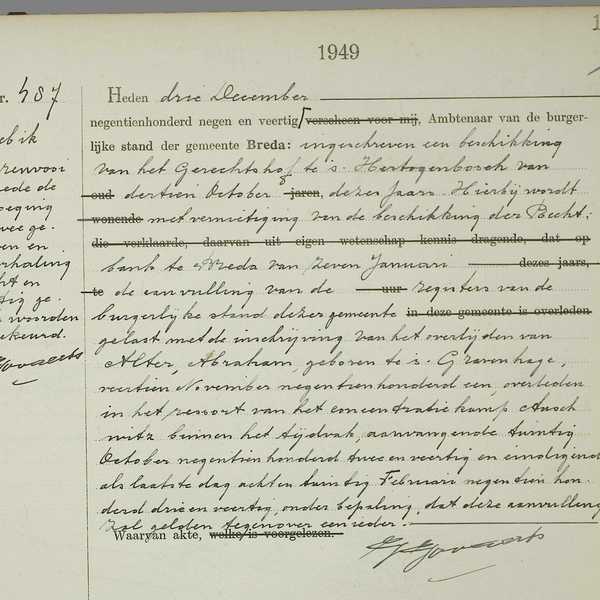 1949
1
r. 487
Heden drie December
negentienhonderd negen en veertig verscheen voor mij, Ambtenaar van de burger-
eb ik
lijke stand der gemeente Breda: ingeschreven een beschikking
van het Gerechtshof te 's-Hertogenbosch van
oud dertien October jaren, dezes jaars. Hierbij wordt
ede de
wonende met vernietiging van de beschikking der Recht:
die verklaarde, daarvan uit eigen wetenschap kennis dragende, dat op
ven en
bank te Breda van zeven Januari dezes jaars,
erhaling
te de aanvulling van de uur registers van de
ht en
tig ge.
burgerlijke stand dezer gemeente in deze gemeente is overleden
woorden
gelast met de inschrijving van het overlijden van
ekeurd.
Alter, Abraham, geboren te 's-Gravenhage,
Govaerts
veertien November negentienhonderd een, overleden
in het ressort van het concentratiekamp Ausch
witz binnen het tijdvak, aanvangende twintig
October negentienhonderd twee en veertig en eindigend
als laatste dag achten twintig Februari negentien hon.
derd drie en veertig, onder bepaling, dat deze aanvulling
zal gelden tegenover een ieder.
Waarvan akte, welke is voorgelezen.
Govaerts